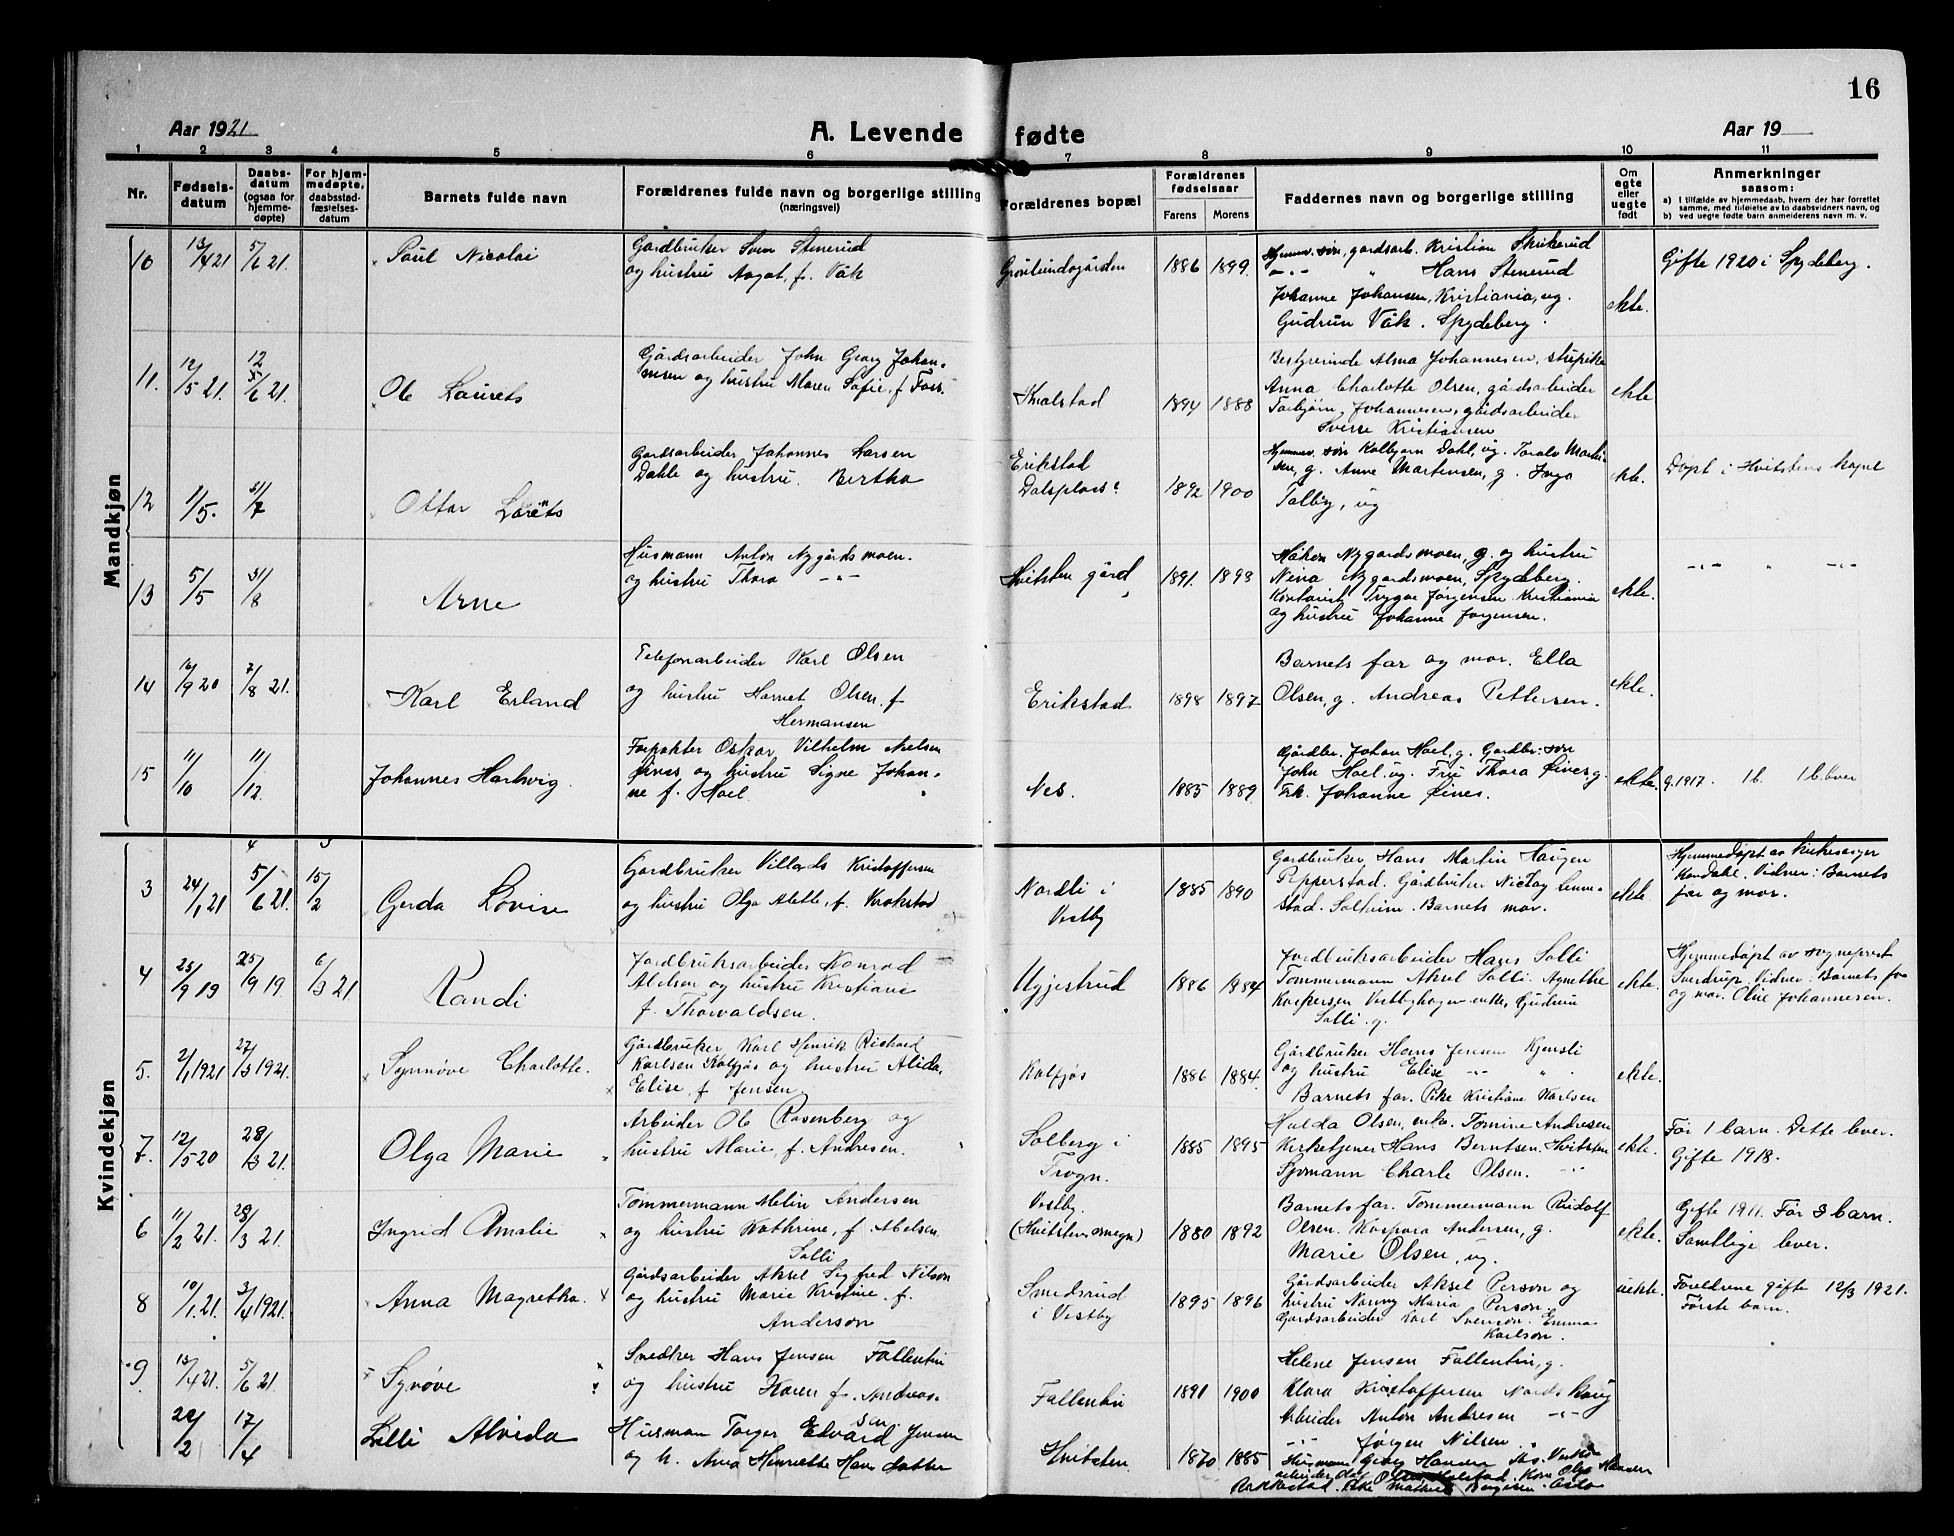 16
Aar 1921
A. Levende fødte
Aar 19
1 2 3 4 5 6 7 8 9 10 11
Nr.
Fødselsdatum
Daabsdatum (ogsaa for hjemmedøpte)
For hjemmedøpte, daabsstadfæstelsesdatum
Barnets fulde navn
Forældrenes fulde navn og borgerlige stilling (næringsvei)
Forældrenes bopæl
Forældrenes fødselsaar
Farens Morens
Faddernes navn og borgerlige stilling
Om egte eller uegte født
Anmerkninger
saasom:
a) I tilfælde av hjemmedaab, hvem der har forrettet samme, med tilføielse av to daabsvidners navn, og
b) ved uegte fødte barn anmelderens navn m. v.
Mandkjøn
10 13/4 21 5/6 21. Paul Nicolai
Gardbruker Sven Stenerud
og hustru Aagot, f. Våk
1886 1899
Hjemmev. søn, gardsarb. Kristian
Hans Stenerud
Johanne Johansen, Kristiania, ug.
Gudrun Våk. Spydeberg.
ekte.
Gifte 1920 i Spydeberg.
11. 12/5 21. 12 5/6 21. Ole Laurets
Gårdsarbeider John Georg Johan-
nsen og hustru Maren Sofie, f. Foss.
Knalstad
1894 1888
Bestyrerinde Alma Johannesen,
Anna Charlotte Olsen, gårdsarbeider
Torbjørn Johannesen, gårdsarbeider
Sverre Kristiansen
ekte
12 1/5. 31/7 Ottar Lorets
Gardsarbeider Johannes Larsen
Dahle og hustru Bertha
Erikstad
1892 1900
Hjemmev. søn Kolbjørn Dahl, ug.
g. Anne Martensen, g. Inga
Talby, ug
ekte.
Døpt i Hvitstens kapel
13 5/5 31/8 Arne
Husmann Anton Nygårdsmoen.
og hustru Thora -"-
Hvitsten gård
1891. 1898
Håkon Nygardsmoen, g. og hustru
Nena Nygardsmoen, Spydeberg.
Kontorist Trygve Jørgensen Kristiania
og hustru Johanne Jørgensen.
ekte.
-"- " -"-
14 16/9 20 7/8 21. Karl Erland
Telefonarbeider Karl Olsen
og hustru Harriet Olsen, f.
Hermansen
Erikstad
1898 1897
Barnets far og mor. Ella
Olsen, g. Andreas Pettersen.
ekte.
15 11/10 11/12. Johannes Hartvig.
Forpakter Oskar Vilhelm Nielsen
Øines og hustru Signe Johan-
ne f. Hoel.
Nes.
1885 1889
Gårdbr. Johan Hoel, g. Gardbr. søn
John Hoel. ug. Fru Thora Øines g.
Frk. Johanne Øines.
ekte.
g. 1917. 1 b. 1 b. lever
Kvindekjøn
4 5
3 24/1 21 5/6 21. 15/2 Gerda Lovise
Gardbruker Villads Kristoffersen
og hustru Olga Alette, f. Krokstad
Nordli i
Vestby
1885 1890
Gardbruker Hans Martin Haugen
Pepperstad. Gårdbruker
Solheim. Barnets mor.
ekte.
Hjemmedøpt av kirkesanger
Vidner: Barnets
far og mor.
4 25/9 19 25/9 19. 6/3 21 Randi
Jordbruksarbeider Konrad
Abelsen og hustru Kristiane
f. Thorvaldsen.
1886 1884
Jordbruksarbeider Hans Solli
Tømmermann Aksel Solli. Agnethe
Kaspersen enke, Gudrun
Solli. g.
ekte.
Hjemmedøpt av sogneprest
Sverdrup. Vidner: Barnets far
og mor. Oline Johannesen.
5. 2/1 1921 27/3 1921. Synnøve Charlotte.
Gårdbruker Karl Henrik Richard
Karlsen Kolfjøs og hustru Alida
Elise, f. Jensen
Kolfjøs
1886 1884.
Gårdbruker Hans Jensen
og hustru Elise -"-
Barnets far. Pike Kristiane Karlsen
ekte.
7. 12/5 20 28/3 21. Olga Marie
Arbeider Ole Rosenberg og
hustru Marie, f. Andresen.
Solberg i
Trogn.
1885 1895
Hulda Olsen, enke. Tomine Andresen
Kirketjener Hans Berntsen, Hvitsten
Sjømann Charle Olsen. -"-
ekte.
Før 1 barn. Dette lever.
Gifte 1918.
6 11/2 21. 28/3 21. Ingrid Amalie
Tømmermann Andersen
og hustru Kathrine, f. Abelsen
Solli
Vestby
(Hvitstens omegn)
1880 1892
Barnets far. Tømmermann Rudolf
Olsen. Kaspara Andersen, g.
Marie Olsen, ug.
ekte.
Gifte 1911. Før 3 barn.
Samtlige lever.
8 10/1 21. 3/4 1921. Anna Magretha
Gårdsarbeider Aksel Sigfred Nilson
og hustru Marie Kristine, f.
Anderson
Smedsrud
i Vestby
1895 1896
Gårdsarbeider Aksel Person og
hustru Maria Person.
Gardsarbeider Karl Svenson. Emma
Karlson.
uekte.
Foreldrene gifte 12/3 1921.
Første barn.
9 13/4 21. 5/6 21. Synøve
Snedker Hans Jensen Fallentin
og hustru Karen f. Andreas-
sen
Fallentin
1891 1900
Helene Jensen Fallentin, g.
Klara Kristoffersen
Arbeider Anton Andresen -"-
-"- Jørgen Nilsen
22/2 17/4 Lilli Alvida
Husman Torger Edvard Jensen
og h. Anna Henriette Hansdatter
Hvitsten.
1870 1885
Husmann Georg Hansen
Olga Hansen
Oslo